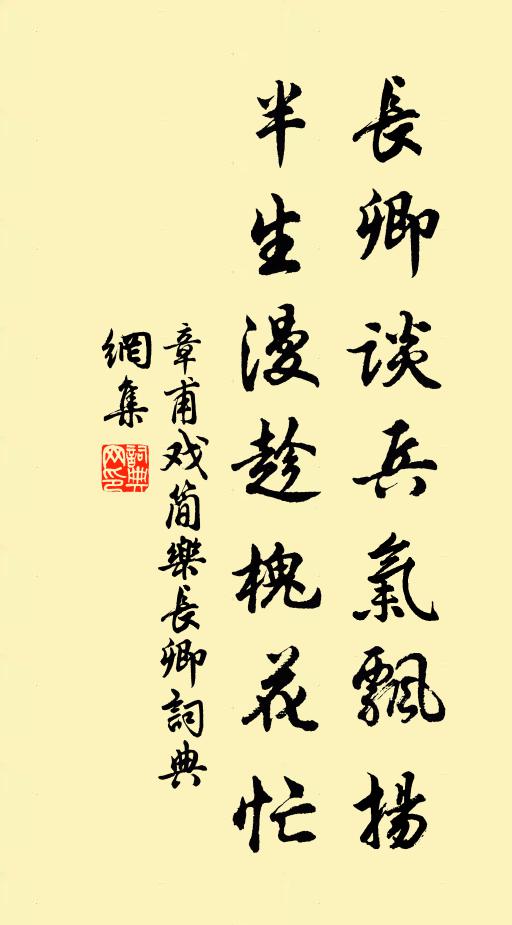 長卿談兵氣飄揚
半生漫趁槐花忙
章甫戏简樂長卿詞典
網集
詞典網印